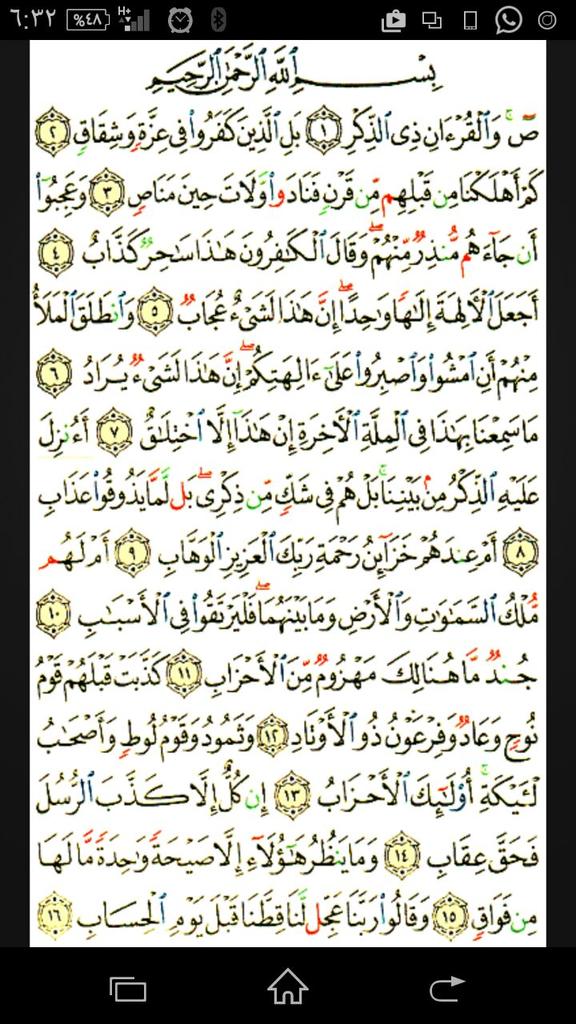 ٦:٣٢ ٪٤٨ H+
بِسْمِ اللَّهِ الرَّحْمَٰنِ الرَّحِيمِ
صٓ ۚ وَٱلْقُرْءَانِ ذِى ٱلذِّكْرِ ١ بَلِ ٱلَّذِينَ كَفَرُوا۟ فِى عِزَّةٍ وَشِقَاقٍ ٢
كَمْ أَهْلَكْنَا مِن قَبْلِهِم مِّن قَرْنٍ فَنَادَوا۟ وَّلَاتَ حِينَ مَنَاصٍ ٣ وَعَجِبُوٓا۟
أَن جَآءَهُم مُّنذِرٌ مِّنْهُمْ ۖ وَقَالَ ٱلْكَٰفِرُونَ هَٰذَا سَٰحِرٌ كَذَّابٌ ٤
أَجَعَلَ ٱلْءَالِهَةَ إِلَٰهًا وَٰحِدًا ۖ إِنَّ هَٰذَا لَشَىْءٌ عُجَابٌ ٥ وَٱنطَلَقَ ٱلْمَلَأُ
مِنْهُمْ أَنِ ٱمْشُوا۟ وَٱصْبِرُوا۟ عَلَىٰٓ ءَالِهَتِكُمْ ۖ إِنَّ هَٰذَا لَشَىْءٌ يُرَادُ ٦
مَا سَمِعْنَا بِهَٰذَا فِى ٱلْمِلَّةِ ٱلْءَاخِرَةِ إِنْ هَٰذَآ إِلَّا ٱخْتِلَٰقٌ ٧ أَءُنزِلَ
عَلَيْهِ ٱلذِّكْرُ مِنۢ بَيْنِنَا ۚ بَلْ هُمْ فِى شَكٍّ مِّن ذِكْرِى ۖ بَل لَّمَّا يَذُوقُوا۟ عَذَابِ
٨ أَمْ عِندَهُمْ خَزَآئِنُ رَحْمَةِ رَبِّكَ ٱلْعَزِيزِ ٱلْوَهَّابِ ٩ أَمْ لَهُم
مُّلْكُ ٱلسَّمَٰوَٰتِ وَٱلْأَرْضِ وَمَا بَيْنَهُمَا ۖ فَلْيَرْتَقُوا۟ فِى ٱلْأَسْبَٰبِ ١٠
جُندٌ مَّا هُنَالِكَ مَهْزُومٌ مِّنَ ٱلْأَحْزَابِ ١١ كَذَّبَتْ قَبْلَهُمْ قَوْمُ
نُوحٍ وَعَادٌ وَفِرْعَوْنُ ذُو ٱلْأَوْتَادِ ١٢ وَثَمُودُ وَقَوْمُ لُوطٍ وَأَصْحَٰبُ
لْـَٔيْكَةِ ۚ أُو۟لَٰٓئِكَ ٱلْأَحْزَابُ ١٣ إِن كُلٌّ إِلَّا كَذَّبَ ٱلرُّسُلَ
فَحَقَّ عِقَابِ ١٤ وَمَا يَنظُرُ هَٰٓؤُلَآءِ إِلَّا صَيْحَةً وَٰحِدَةً مَّا لَهَا
مِن فَوَاقٍ ١٥ وَقَالُوا۟ رَبَّنَا عَجِّل لَّنَا قِطَّنَا قَبْلَ يَوْمِ ٱلْحِسَابِ ١٦